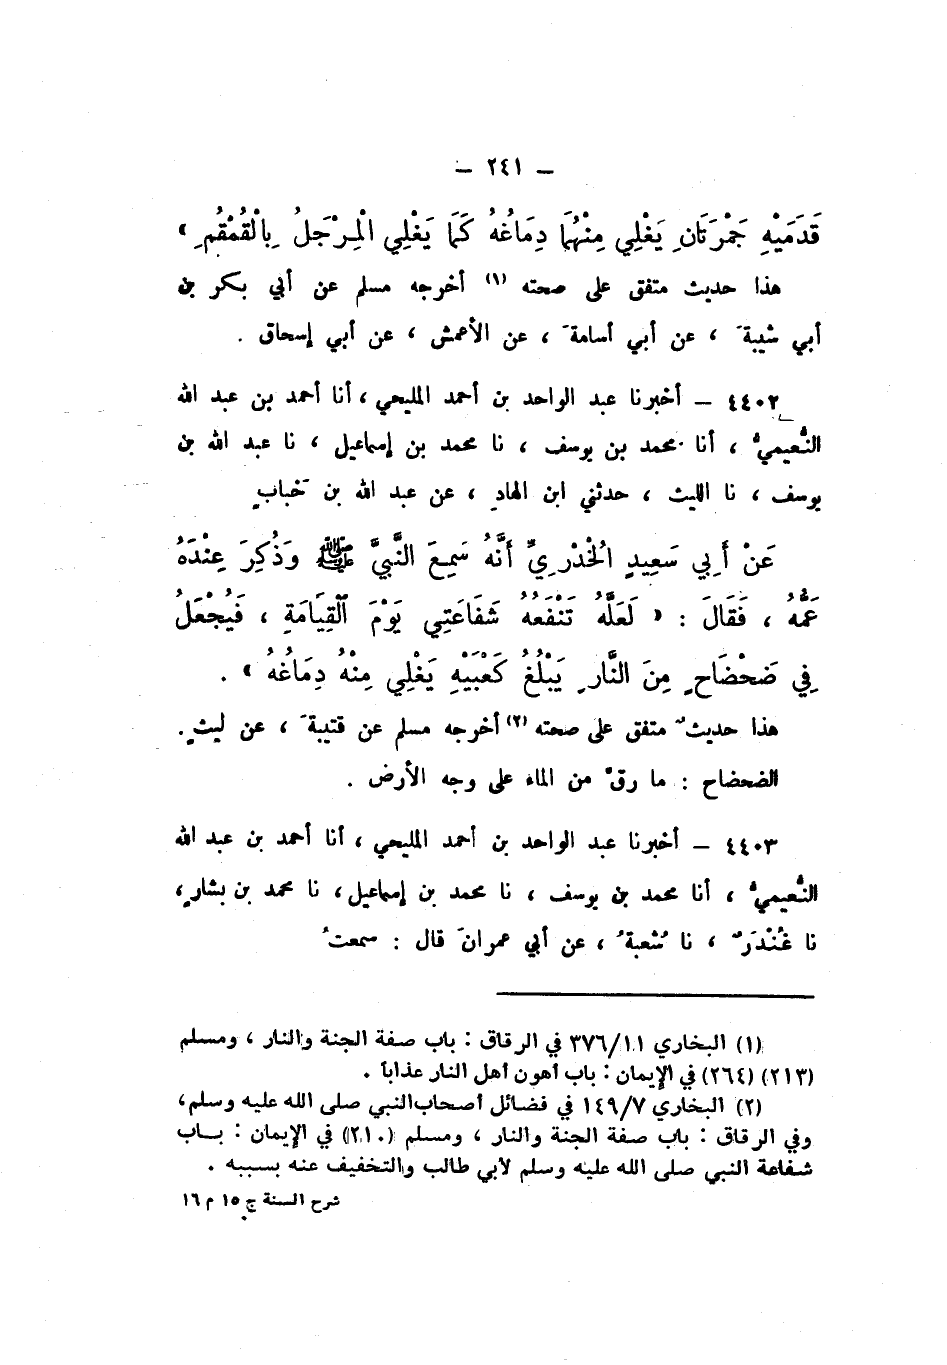 – ٢٤١ –
قَدَمَيْهِ جَمْرَتَانِ يَغْلِي مِنْهُمَا دِمَاغُهُ كَمَا يَغْلِي الْمِرْجَلُ بِالْقُمْقُمِ »
هذا حديث متفق على صحته (١) أخرجه مسلم عن أبي بكر بن
أبي شيبةَ ، عن أبي أسامةَ ، عن الأعمش ، عن أبي إسحاق .
٤٤٠٢ – أخبرنا عبد الواحد بن أحمد المليحي ، أنا أحمد بن عبد الله
النُّعيميُّ ، أنا محمد بن يوسف ، نا محمد بن إسماعيل ، نا عبد الله بن
يوسف ، نا الليث ، حدثني ابن الهادِ ، عن عبد الله بن خَبابٍ
عَنْ أَبِي سَعِيدٍ الْخُدْرِيِّ أَنَّهُ سَمِعَ النَّبِيَّ ﷺ وَذُكِرَ عِنْدَهُ
عَمُّهُ ، فَقَالَ : « لَعَلَّهُ تَنْفَعُهُ شَفَاعَتِي يَوْمَ الْقِيَامَةِ ، فَيُجْعَلُ
فِي ضَحْضَاحٍ مِنَ النَّارِ يَبْلُغُ كَعْبَيْهِ يَغْلِي مِنْهُ دِمَاغُهُ » .
هذا حديثٌ متفق على صحته (٢) أخرجه مسلم عن قتيبةَ ، عن ليثٍ .
الضحضاح : ما رقَّ من الماء على وجه الأرض .
٤٤٠٣ – أخبرنا عبد الواحد بن أحمد المليحي ، أنا أحمد بن عبد الله
النُّعيميُّ ، أنا محمد بن يوسف ، نا محمد بن إسماعيل ، نا محمد بن بشارٍ ،
نا غُنْدَرٌ ، نا شُعبةُ ، عن أبي عمرانَ قال : سمعتُ
(١) البخاري ٣٧٦/١١ في الرقاق : باب صفة الجنة والنار ، ومسلم
(٢١٣) (٢٦٤) في الإيمان : باب أهون أهل النار عذاباً .
(٢) البخاري ١٤٩/٧ في فضائل أصحاب النبي صلى الله عليه وسلم ،
وفي الرقاق : باب صفة الجنة والنار ، ومسلم (٢١٠) في الإيمان : بـاب
شفاعة النبي صلى الله عليه وسلم لأبي طالب والتخفيف عنه بسببه .
شرح السنة ج ١٥ م ١٦